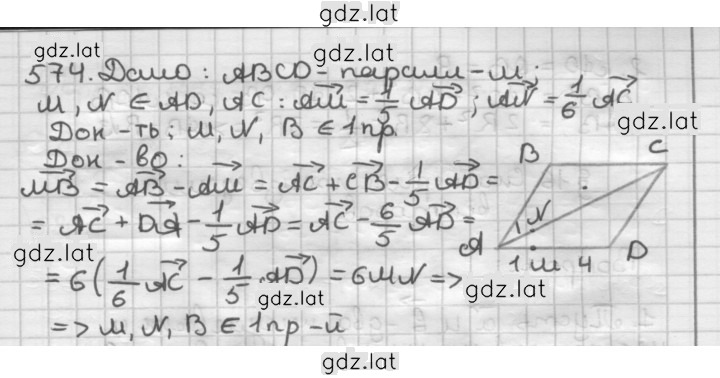 gdz.lat
gdz.lat
gdz.lat
574. Дано: ABCD - паралл-м;
M, N ∈ AD, AC : AM⃗ = 1/5 AD⃗; AN⃗ = 1/6 AC⃗
gdz.lat
Док-ть: M, N, B ∈ 1 пр.
Док-во:
MB⃗ = AB⃗ - AM⃗ = AC⃗ + CB⃗ - 1/5 AD⃗ =
= AC⃗ + DA⃗ - 1/5 AD⃗ = AC⃗ - 6/5 AD⃗ =
gdz.lat
= 6(1/6 AC⃗ - 1/5 AD⃗) = 6MN =>
gdz.lat
gdz.lat
=> M, N, B ∈ 1 пр-й
gdz.lat
B C
1 N
A D
1 M 4